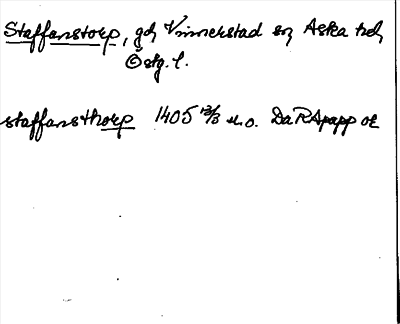 Staffanstorp, gd, Vinnerstad sn, Aska hd,
Östg. l.
staffansthorp 1405 13/3 u.o. Da RApapp or